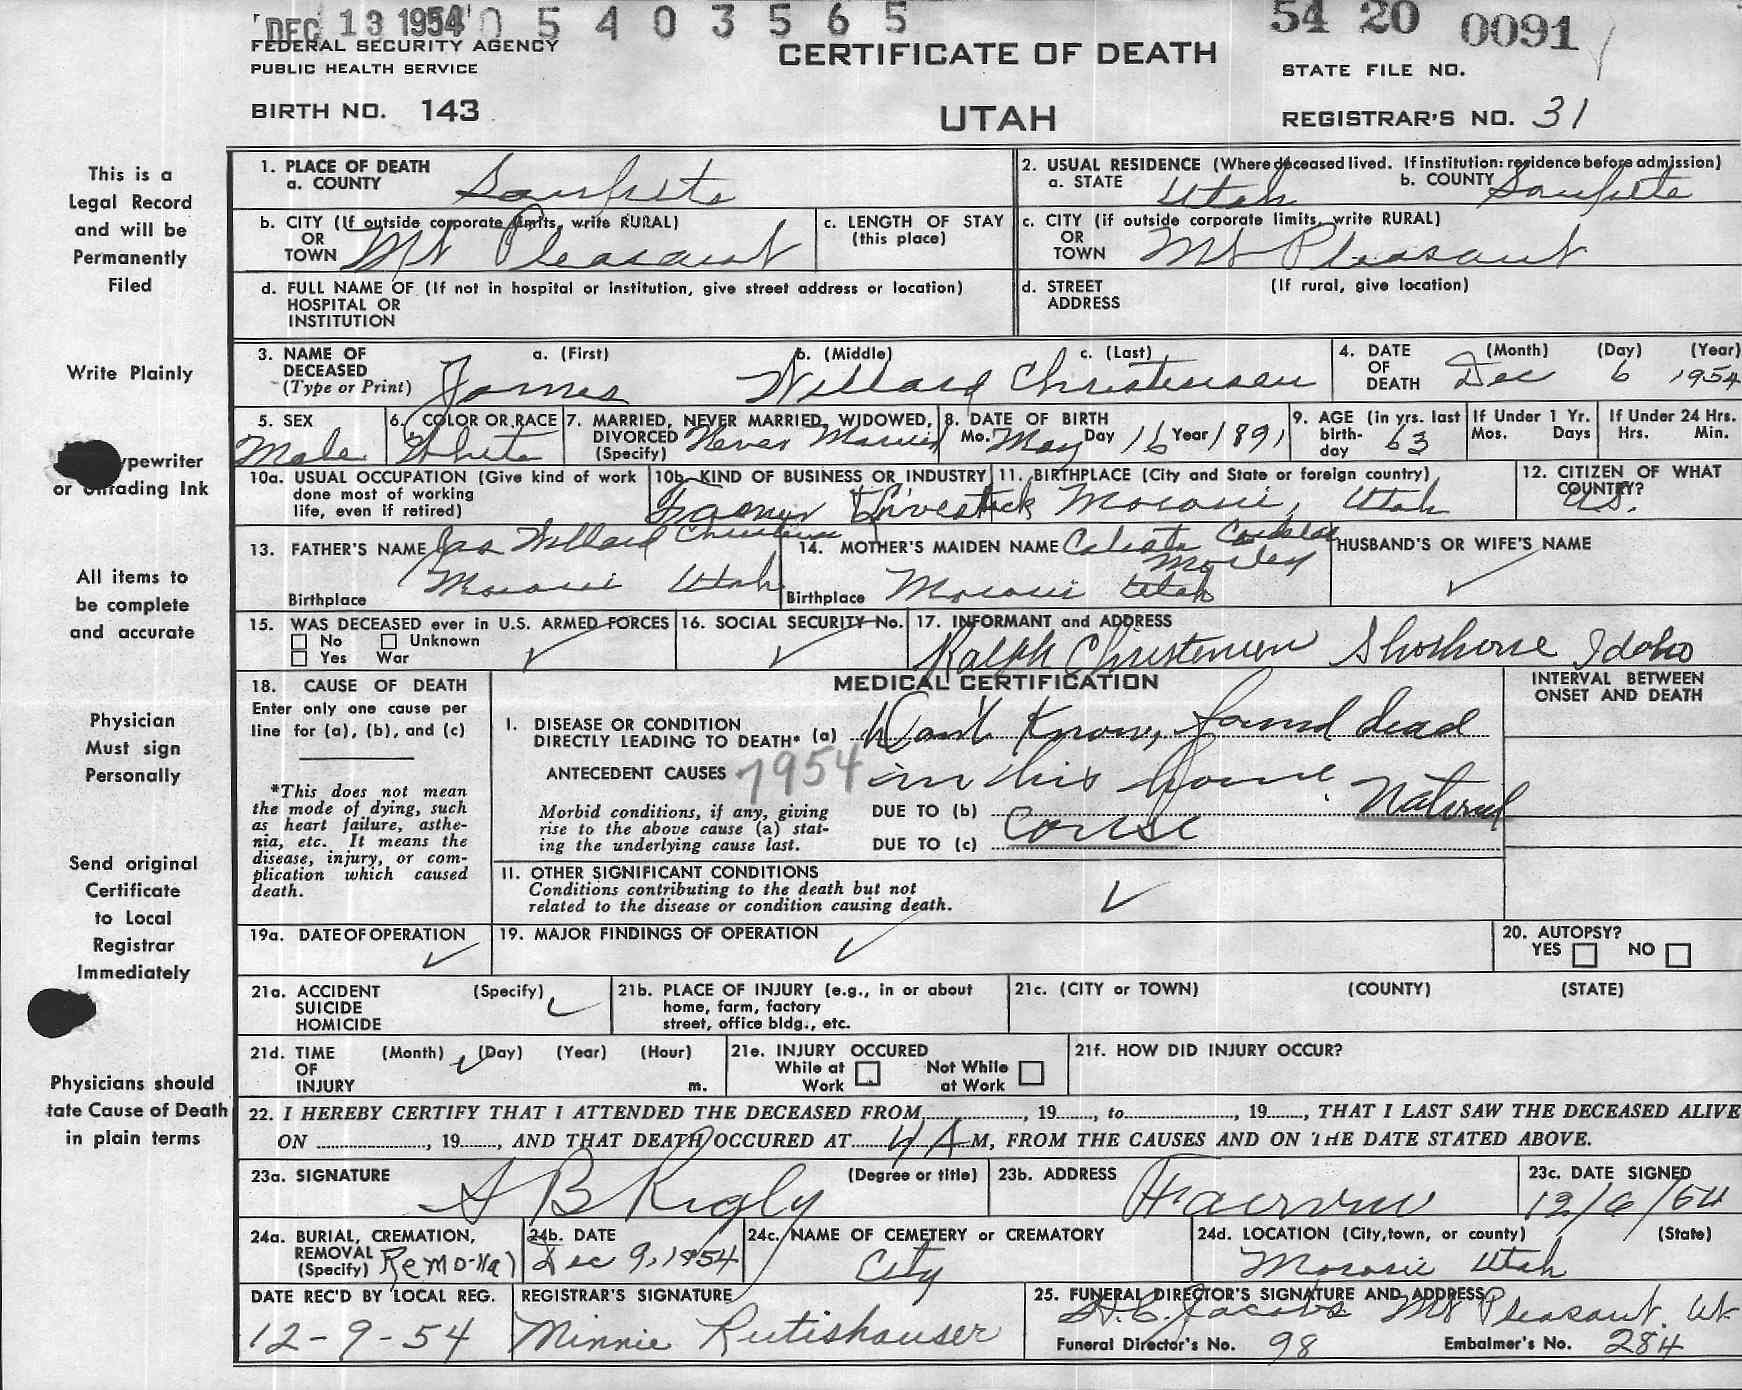 DEC 13 1954 0 5 4 0 3 5 6 5 54 20 0091
FEDERAL SECURITY AGENCY
PUBLIC HEALTH SERVICE
CERTIFICATE OF DEATH
STATE FILE NO.
BIRTH NO. 143
UTAH
REGISTRAR'S NO. 31
This is a
Legal Record
and will be
Permanently
Filed
Write Plainly
ypewriter
or Unfading Ink
All items to
be complete
and accurate
Physician
Must sign
Personally
Send original
Certificate
to Local
Registrar
Immediately
Physicians should
tate Cause of Death
in plain terms
1. PLACE OF DEATH
a. COUNTY Sanpete
2. USUAL RESIDENCE (Where deceased lived. If institution: residence before admission)
a. STATE Utah b. COUNTY Sanpete
b. CITY (If outside corporate limits, write RURAL)
OR
TOWN Mt Pleasant
c. LENGTH OF STAY
(this place)
c. CITY (if outside corporate limits, write RURAL)
OR
TOWN Mt Pleasant
d. FULL NAME OF (If not in hospital or institution, give street address or location)
HOSPITAL OR
INSTITUTION
d. STREET (If rural, give location)
ADDRESS
3. NAME OF a. (First) b. (Middle) c. (Last)
DECEASED
(Type or Print) James Willard Christensen
4. DATE (Month) (Day) (Year)
OF
DEATH Dec 6 1954
5. SEX
Male
6. COLOR OR RACE
White
7. MARRIED, NEVER MARRIED, WIDOWED,
DIVORCED Never Married
(Specify)
8. DATE OF BIRTH
Mo. May Day 16 Year 1891
9. AGE (in yrs. last
birth- 63
day
If Under 1 Yr.
Mos. Days
If Under 24 Hrs.
Hrs. Min.
10a. USUAL OCCUPATION (Give kind of work
done most of working
life, even if retired)
10b. KIND OF BUSINESS OR INDUSTRY
Farmer Livestock
11. BIRTHPLACE (City and State or foreign country)
Moroni, Utah
12. CITIZEN OF WHAT
COUNTRY?
US.
13. FATHER'S NAME Jas Willard Christensen
Birthplace Moroni Utah
14. MOTHER'S MAIDEN NAME
Morley
Birthplace Moroni Utah
HUSBAND'S OR WIFE'S NAME
15. WAS DECEASED ever in U.S. ARMED FORCES
No Unknown
Yes War
16. SOCIAL SECURITY No.
17. INFORMANT and ADDRESS
Ralph Christensen Shoshone Idaho
18. CAUSE OF DEATH
Enter only one cause per
line for (a), (b), and (c)
*This does not mean
the mode of dying, such
as heart failure, asthe-
nia, etc. It means the
disease, injury, or com-
plication which caused
death.
MEDICAL CERTIFICATION
INTERVAL BETWEEN
ONSET AND DEATH
I. DISEASE OR CONDITION
DIRECTLY LEADING TO DEATH* (a) Don't Know, found dead
ANTECEDENT CAUSES 7954 in his home.
Morbid conditions, if any, giving
rise to the above cause (a) stat-
ing the underlying cause last.
DUE TO (b) Natural
DUE TO (c) Couse
II. OTHER SIGNIFICANT CONDITIONS
Conditions contributing to the death but not
related to the disease or condition causing death.
19a. DATE OF OPERATION
19. MAJOR FINDINGS OF OPERATION
20. AUTOPSY?
YES NO
21a. ACCIDENT (Specify)
SUICIDE
HOMICIDE
21b. PLACE OF INJURY (e.g., in or about
home, farm, factory
street, office bldg., etc.
21c. (CITY or TOWN) (COUNTY) (STATE)
21d. TIME (Month) (Day) (Year) (Hour)
OF
INJURY m.
21e. INJURY OCCURED
While at Not While
Work at Work
21f. HOW DID INJURY OCCUR?
22. I HEREBY CERTIFY THAT I ATTENDED THE DECEASED FROM , 19 , to , 19 , THAT I LAST SAW THE DECEASED ALIVE
ON , 19 , AND THAT DEATH OCCURED AT 4 A M, FROM THE CAUSES AND ON THE DATE STATED ABOVE.
23a. SIGNATURE (Degree or title)
B Rigby
23b. ADDRESS
Fairview
23c. DATE SIGNED
12/6/54
24a. BURIAL, CREMATION,
REMOVAL
(Specify) Removal
24b. DATE
Dec 9, 1954
24c. NAME OF CEMETERY or CREMATORY
City
24d. LOCATION (City, town, or county) (State)
Moroni Utah
DATE REC'D BY LOCAL REG.
12-9-54
REGISTRAR'S SIGNATURE
Minnie Rutishauser
25. FUNERAL DIRECTOR'S SIGNATURE AND ADDRESS
Jacobs Mt Pleasant. Ut
Funeral Director's No. 98 Embalmer's No. 284